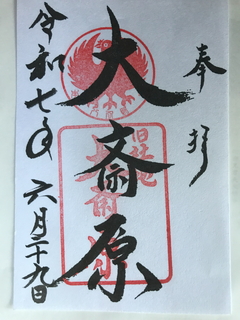 奉拝
大斎原
令和七年六月二十九日